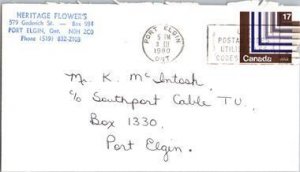 HERITAGE FLOWERS
579 Goderich St. — Box 594
PORT ELGIN, Ont. N0H 2C0
Phone (519) 832-2103
PORT ELGIN
5 PM
1980
ONT
POSTA
UTILIS
CODES
17
Canada
Mr. K. McIntosh,
c/o Southport Cable TV.
Box 1330,
Port Elgin.